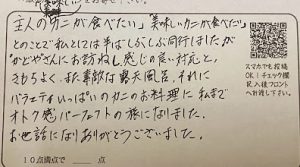 主人の「カニが食べたい」「美味しいカニが食べたい」
とのことで私としては半ばしぶしぶ同行しましたが
かどやさんにお訪ねし感じの良い対応と、
きもちよく、また素敵な露天風呂、それに
バラエティいっぱいのカニのお料理に私まで
オトク感パーフェクトの旅になりました。
お世話になりありがとうございました。
スマホでも投稿
OK!チェック欄
記入後フロント
へお渡し下さい。
10点満点で　　点